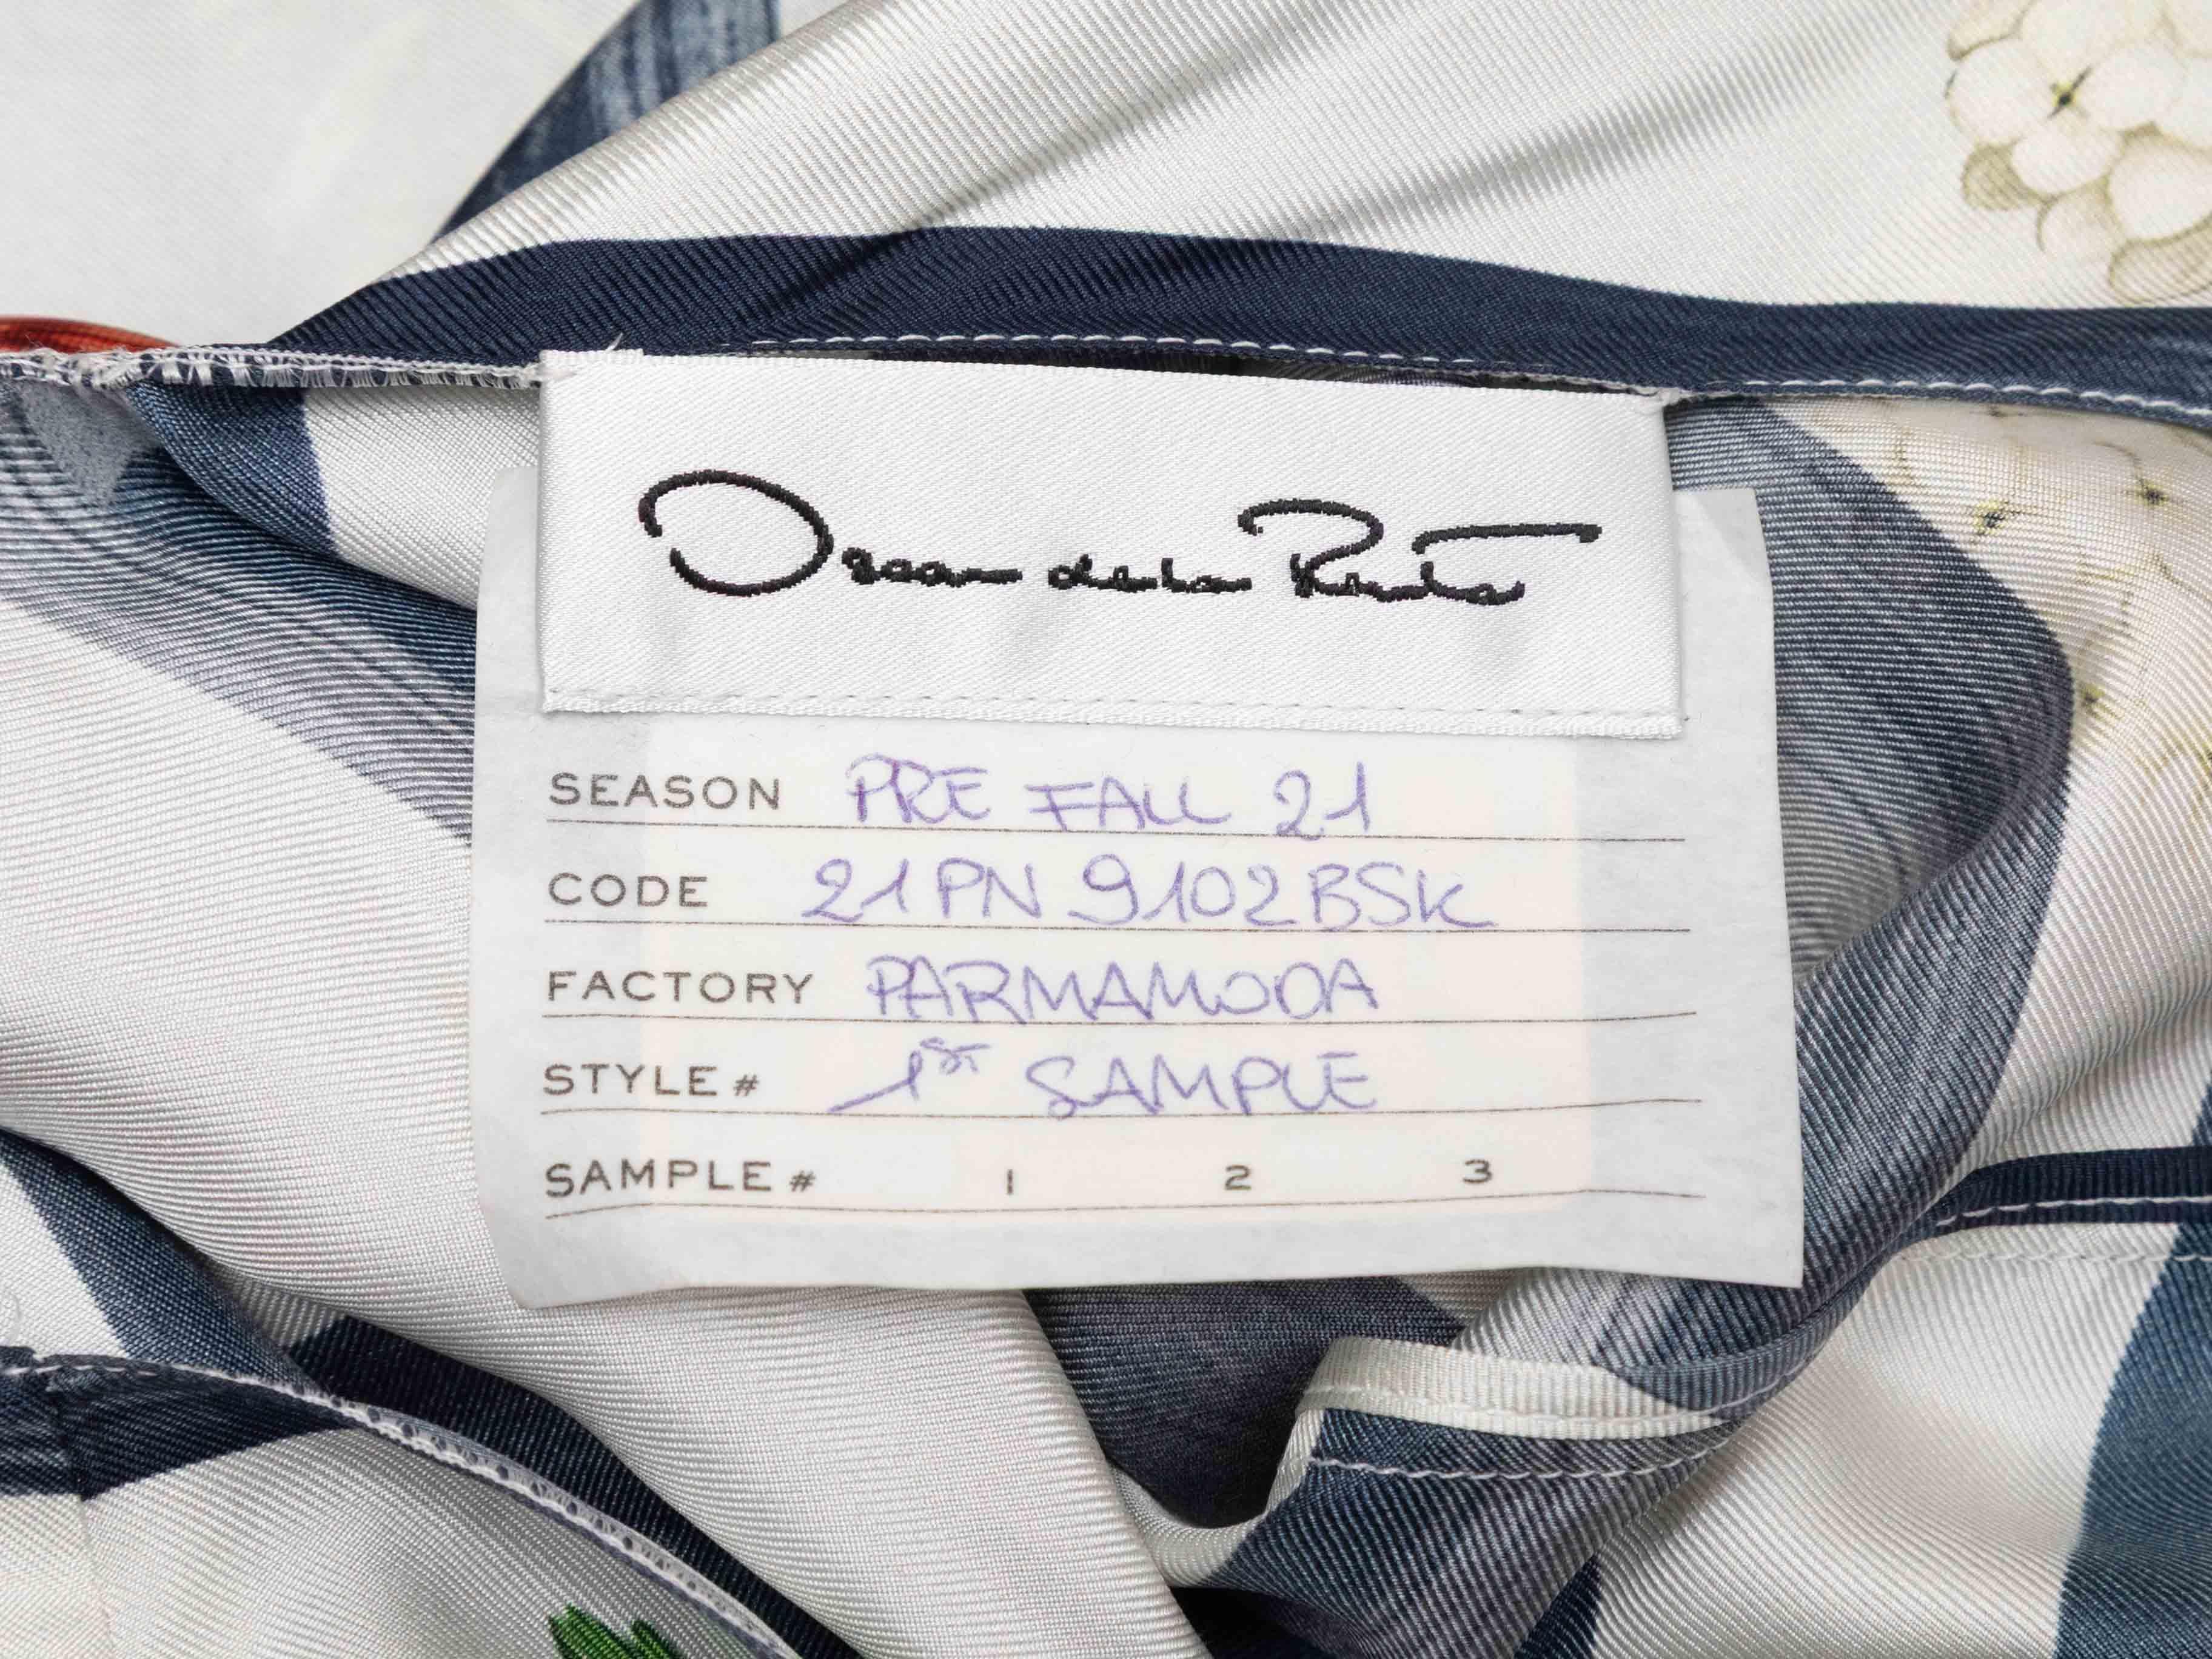 Oscar de la Renta
SEASON PRE FALL 21
CODE 21PN9102BSK
FACTORY PARMAMODA
STYLE # 1ST SAMPLE
SAMPLE # 1 2 3